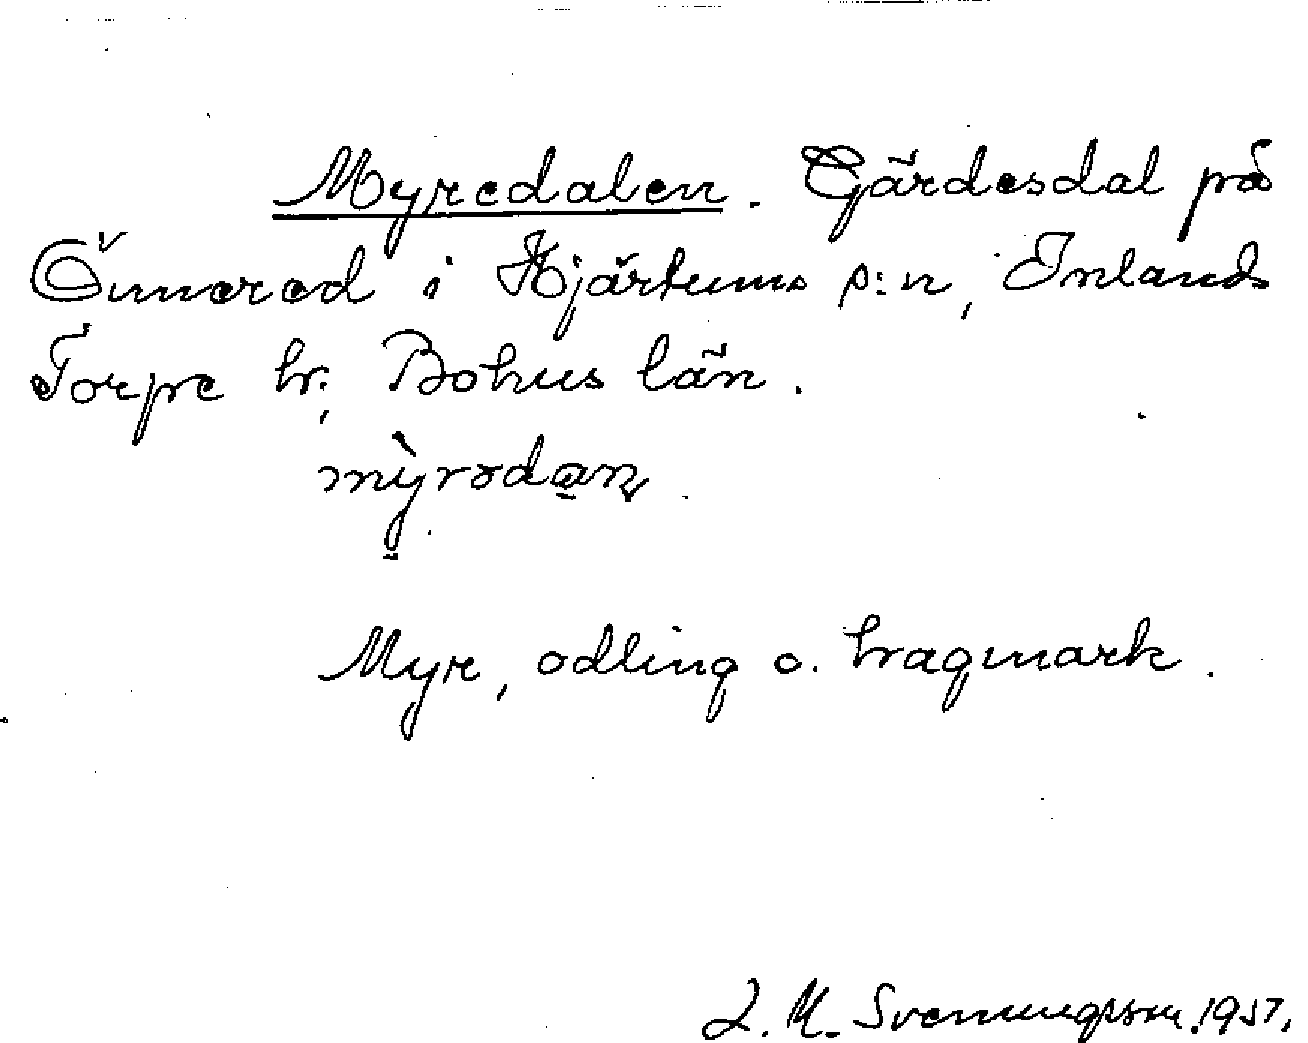 Myredalen. Gärdesdal på
Önnered i Hjärtums s:n, Inlands
Torpe hr, Bohus län.
mỳrədan
Myr, odling o. hagmark.
L. M. Svenungsson. 1957.